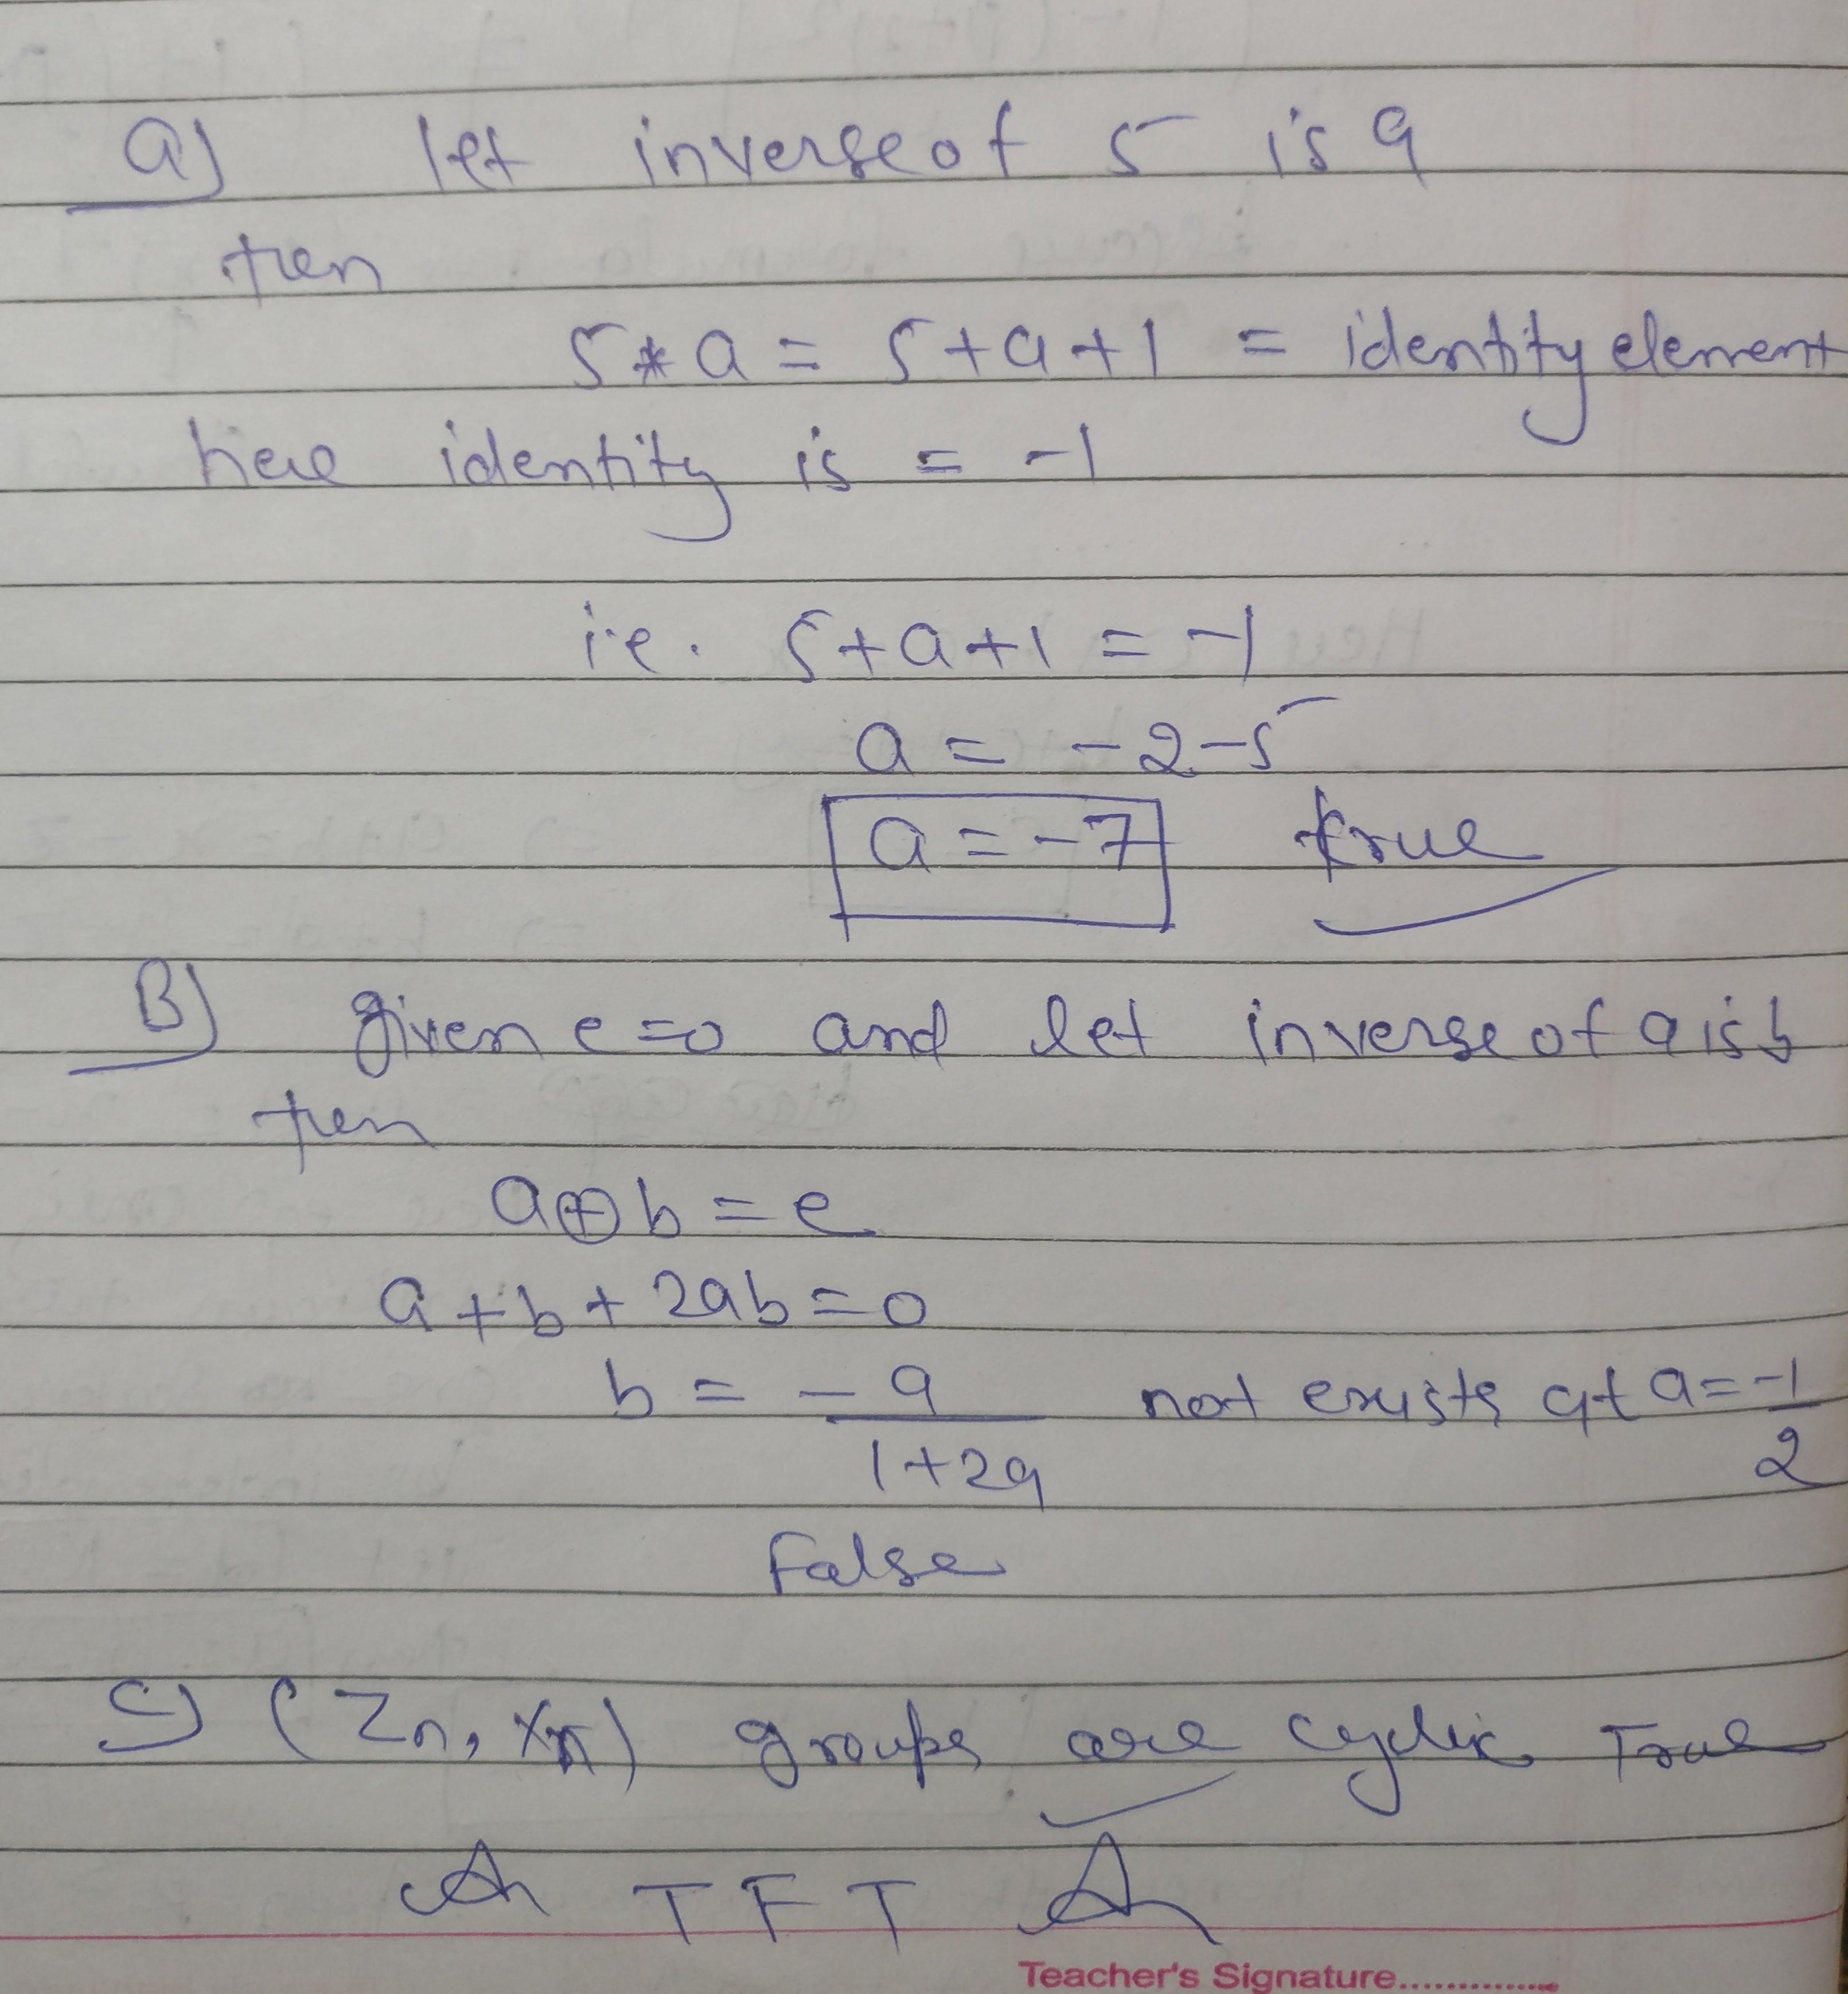 a) let inverse of 5 is a
then
5 * a = 5 + a + 1 = identity element
here identity is = -1
i.e. 5 + a + 1 = -1
a = -2 - 5
a = -7 true
B) given e = 0 and let inverse of a is b
then
a ⊕ b = e
a + b + 2ab = 0
b = -a/(1+2a) not exists at a = -1/2
False
c) (Zn, Xn) groups are cyclic True
A T F T A
Teacher's Signature...............